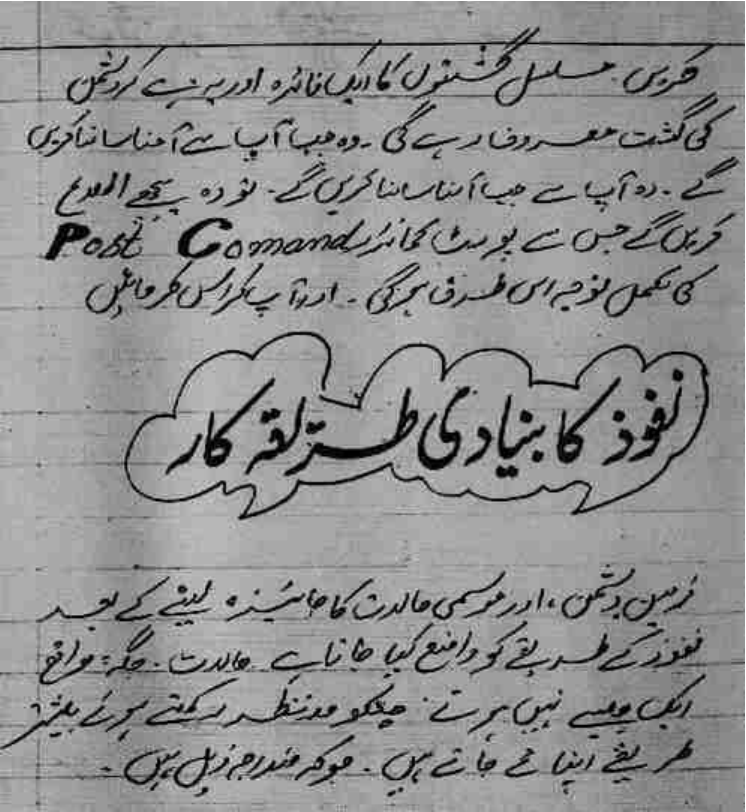 کریں۔ مسلسل گشتوں کا ایک فائدہ اور یہ ہے کہ دشمن
کی گشت مصروف رہے گی۔ وہ جب آپ سے آمنا سامنا کریں
گے۔ وہ آپ سے جب آمنا سامنا کریں گے۔ تو وہ پیچھے اطلاع
کریں گے جس سے پوسٹ کمانڈر Post Comand
کی مکمل توجہ اس طرف ہوگی۔ اور آپ کراس کر جائیں
نفوذ کا بنیادی طریقہ کار
زمین، دشمن، اور موسمی حالات کا جائزہ لینے کے بعد
نفوذ کے طریقے کو واضع کیا جاتا ہے حالات۔ جگہ، مواقع
ایک جیسے نہیں ہوتے جنکو مدنظر رکھتے ہوئے
طریقے اپنائے جاتے ہیں۔ جوکہ مندرجہ ذیل ہیں۔